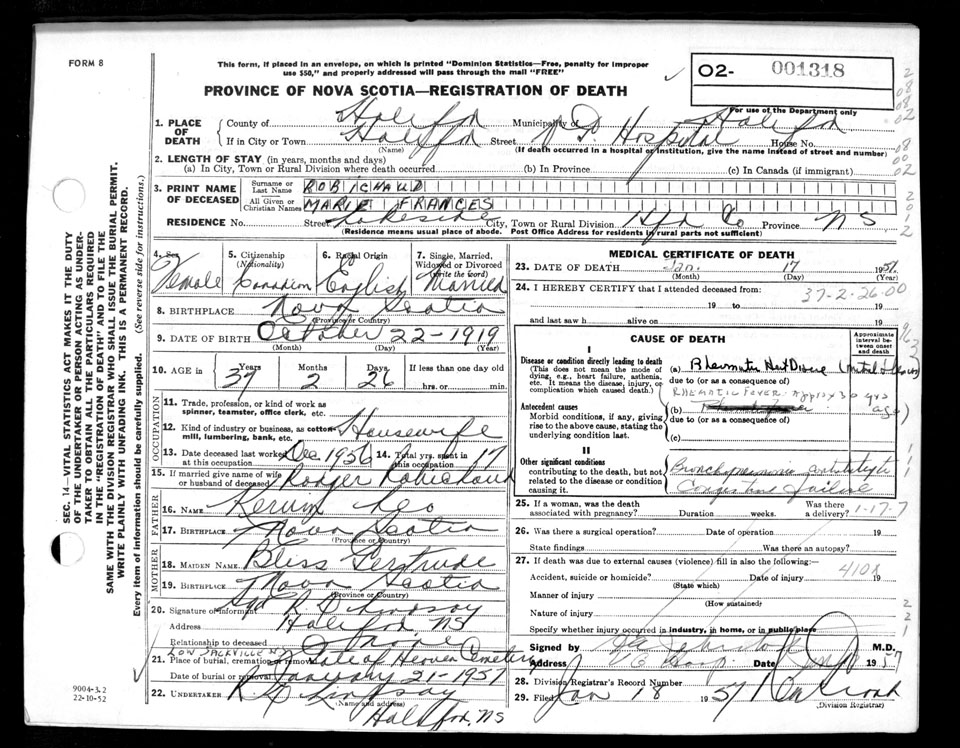 FORM 8
This form, if placed in an envelope, on which is printed "Dominion Statistics—Free, penalty for improper
use $50," and properly addressed will pass through the mail "FREE"
02- 001318
PROVINCE OF NOVA SCOTIA—REGISTRATION OF DEATH
For use of the Department only
1. PLACE OF DEATH
County of Halifax Municipality of Halifax
If in City or Town Halifax Street Hospital House No.
(Name) (If death occurred in a hospital or institution, give the name instead of street and number)
2. LENGTH OF STAY (in years, months and days)
(a) In City, Town or Rural Division where death occurred (b) In Province (c) In Canada (if immigrant)
3. PRINT NAME OF DECEASED
Surname or Last Name ROBICHAUD
All Given or Christian Names MARIE FRANCES
RESIDENCE No. Street Lakeside City, Town or Rural Division Hfx Co Province NS
(Residence means usual place of abode. Post Office Address for residents in rural parts not sufficient)
4. Sex Female
5. Citizenship (Nationality) Canadian
6. Racial Origin English
7. Single, Married, Widowed or Divorced (write the word) Married
8. BIRTHPLACE Nova Scotia
(Province or Country)
9. DATE OF BIRTH October 22-1919
(Month) (Day) (Year)
10. AGE in 37 Years 2 Months 26 Days If less than one day
hrs. or min.
OCCUPATION
11. Trade, profession, or kind of work as
spinner, teamster, office clerk, etc.
12. Kind of industry or business, as cotton mill, lumbering, bank, etc. Housewife
13. Date deceased last worked at this occupation Dec 1956
14. Total yrs. spent in this occupation 17
15. If married give name of wife or husband of deceased Rodger Robichaud
FATHER
16. Name Kerwin Leo
17. Birthplace Nova Scotia
(Province or Country)
MOTHER
18. Maiden Name Bliss Gertrude
19. Birthplace Nova Scotia
(Province or Country)
20. Signature of informant Sgd R D Lindsay
Address Halifax NS
Relationship to deceased
21. Place of burial, cremation or removal Low Sackville NS Gate of Heaven Cemetery
Date of burial or removal January 21-1957
22. UNDERTAKER R D Lindsay
(Name and address)
Halifax, NS
MEDICAL CERTIFICATE OF DEATH
23. DATE OF DEATH Jan. 17 1957
(Month) (Day) (Year)
24. I HEREBY CERTIFY that I attended deceased from: 37-2-26.00
19 to 19
and last saw h alive on 19
CAUSE OF DEATH
Approximate interval between onset and death
I
Disease or condition directly leading to death
(This does not mean the mode of dying, e.g., heart failure, asthenia, etc. It means the disease, injury, or complication which caused death.)
(a) Rheumatic Heart Disease
due to (or as a consequence of)
RHEMATIC FEVER Approx 30 yrs ago
Antecedent causes
Morbid conditions, if any, giving rise to the above cause, stating the underlying condition last.
(b)
due to (or as a consequence of)
(c)
II
Other significant conditions
contributing to the death, but not related to the disease or condition causing it.
Bronchopneumonia
Congestive failure
25. If a woman, was the death associated with pregnancy? Duration weeks. Was there a delivery? 1-17-7
26. Was there a surgical operation? Date of operation 19
State findings Was there an autopsy?
27. If death was due to external causes (violence) fill in also the following:—
Accident, suicide or homicide? Date of injury 19
410X
(State which)
Manner of injury
(How sustained)
Nature of injury
Specify whether injury occurred in industry, in home, or in public place
Signed by M.D.
Address Date 1957
28. Division Registrar's Record Number
29. Filed Jan 18 1957
(Division Registrar)
SEC. 14—VITAL STATISTICS ACT MAKES IT THE DUTY
OF THE UNDERTAKER OR PERSON ACTING AS UNDERTAKER
TO OBTAIN ALL THE PARTICULARS REQUIRED
IN THE "REGISTRATION OF DEATH" AND TO FILE THE
SAME WITH THE DIVISION REGISTRAR WHO SHALL ISSUE THE BURIAL PERMIT.
WRITE PLAINLY WITH UNFADING INK. THIS IS A PERMANENT RECORD.
Every item of information should be carefully supplied. (See reverse side for instructions.)
9004-3.2
22-10-52